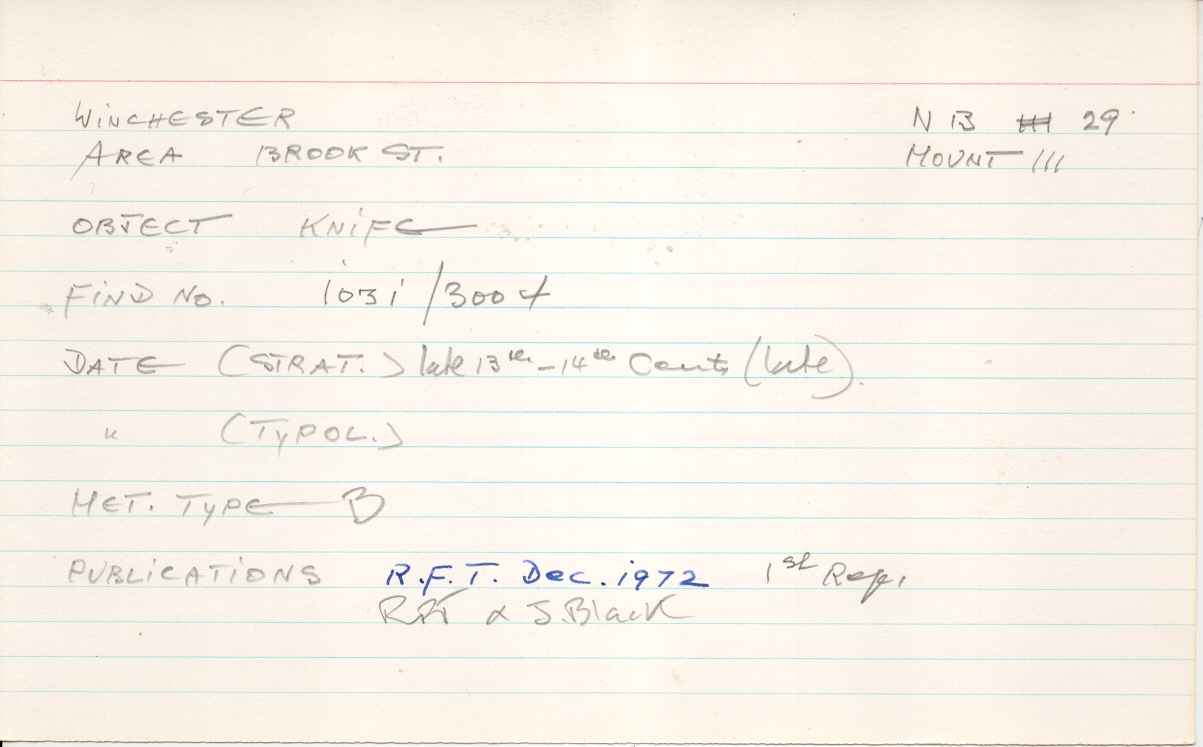 WINCHESTER
NB 29
AREA BROOK ST.
MOUNT 111
OBJECT KNIFE
FIND NO. 1031/3004
DATE (STRAT.) late 13th - 14th Cents (late).
" (TYPOL.)
MET. TYPE B
PUBLICATIONS R.F.T. Dec. 1972 1st Rep.
& J. Black